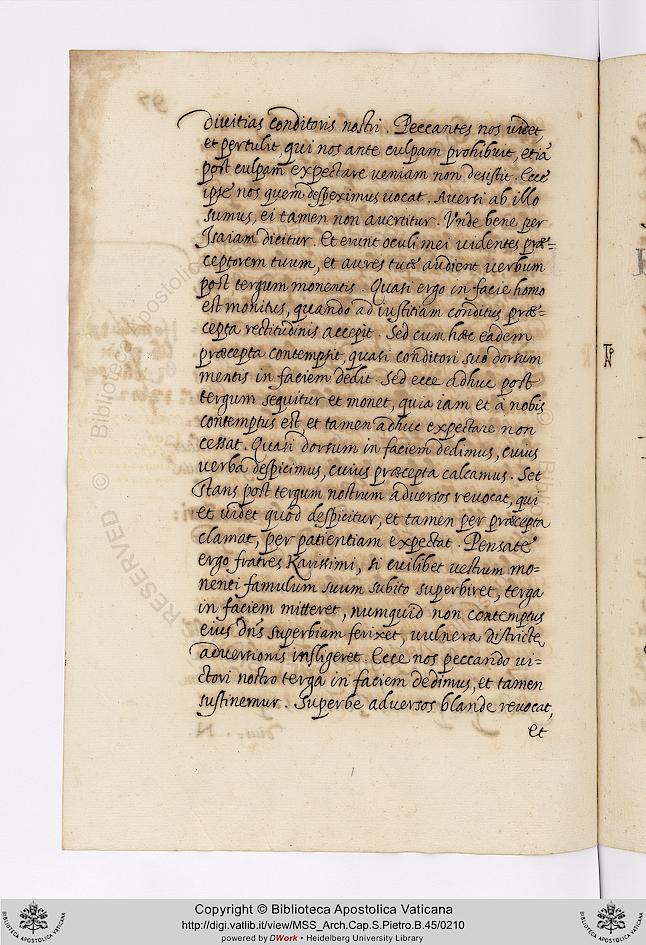 divitias conditoris nostri. Peccantes nos videt,
et pertulit, qui nos ante culpam prohibuit, etiā
post culpam expectare veniam non desistit. Ecce
ipse nos quem despeximus vocat. Aversi ab illo
sumus, ei tamen non avertitur. Unde bene per
Isaiam dicitur. Et erunt oculi mei videntes præ=
ceptorem tuum, et aures tuæ audient verbum
post tergum monentis. Quasi ergo in facie homo
est monitus, quando ad iustitiam conditus præ=
cepta rectitudinis accepit. Sed cum hæc eadem
præcepta contempsit, quasi conditori suo dorsum
mentis in faciem dedit. Sed ecce adhuc post
tergum sequitur et monet, quia iam et à nobis
contemptus est, et tamen adhuc expectare non
cessat. Quasi dorsum in faciem dedimus, cuius
verba despicimus, cuius præcepta calcamus. Set
stans post tergum nostrum adversos revocat, qui
et videt quod despicitur, et tamen per præcepta
clamat, per patientiam expectat. Pensate
ergo fratres Karissimi, si cuilibet vestrum mo=
nenti famulum suum subito superbiret, terga
in faciem mitteret, numquid non contemptus
eius dn̄s superbiam ferixet, vulnera districte
adversionis insligeret. Ecce nos peccando vi=
ctori nostro terga in faciem dedimus, et tamen
sustinemur. Superbe adversos blande revocat,
et
Copyright © Biblioteca Apostolica Vaticana
http://digi.vatlib.it/view/MSS_Arch.Cap.S.Pietro.B.45/0210
powered by DWork • Heidelberg University Library